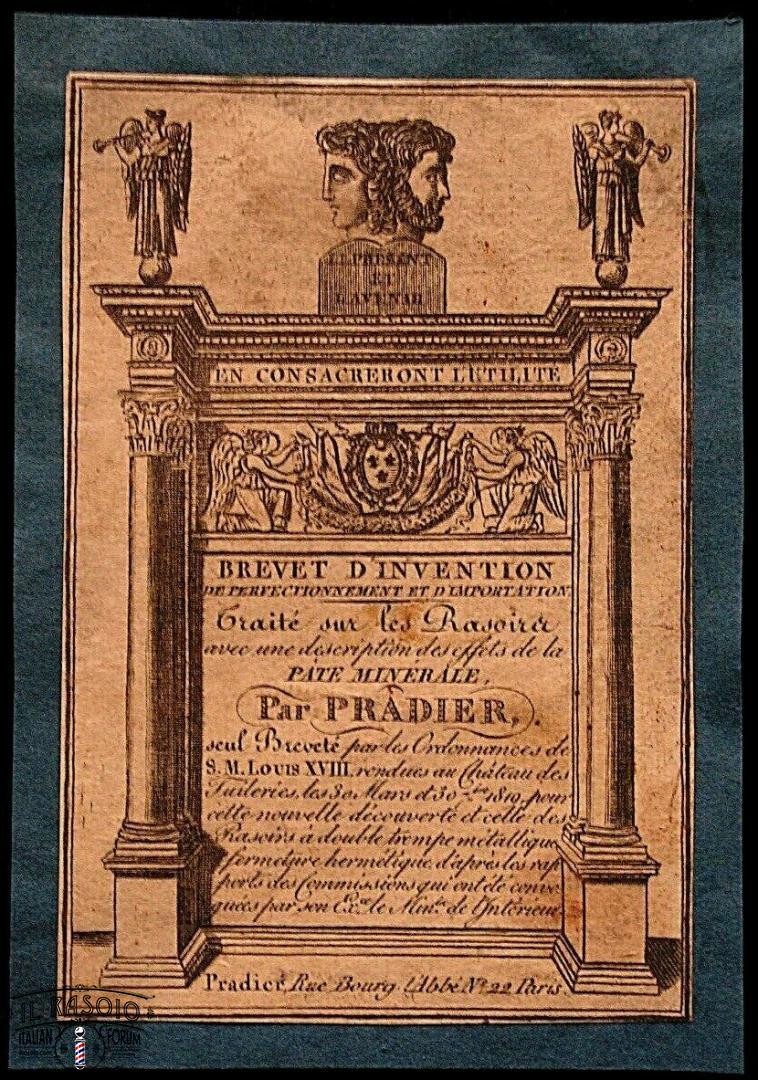 LE PRESENT
ET
L'AVENIR
EN CONSACRERONT L'ETILITE
BREVET D'INVENTION
DE PERFECTIONNEMENT ET D'IMPORTATION
Traité sur les Rasoirs
avec une description des effets de la
PATE MINÉRALE,
Par PRADIER,
seul Breveté par les Ordonnances de
S. M. LOUIS XVIII, rendues au Château des
Tuileries, les 30 Mars et 30 1819, pour
cette nouvelle découverte et celle des
Rasoirs à double trempe métallique
fermeture hermétique, d'après les rap
ports des Commissions qui ont été convo
quées par son Exce. le Mintre. de l'Intérieur.
Pradier, Rue Bourg-l'Abbé No. 22 Paris.
IL RASOIO
ITALIAN FORUM